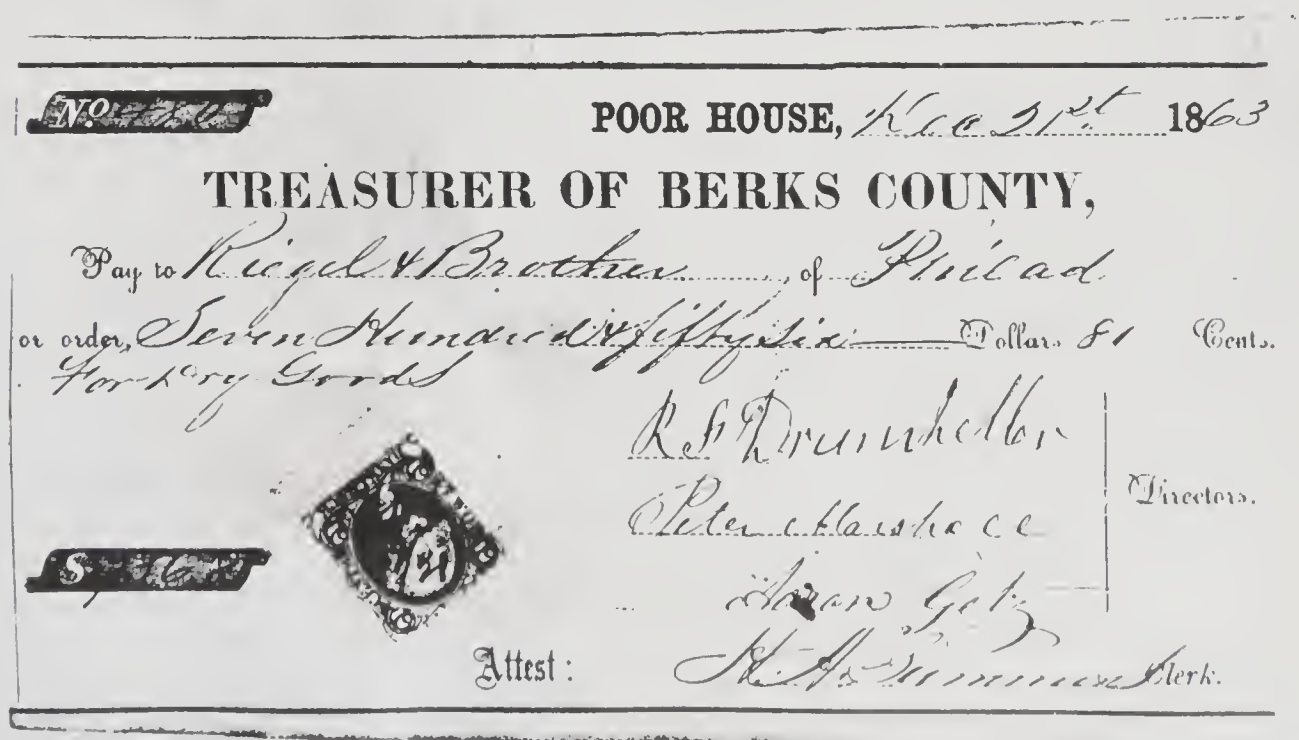 No
POOR HOUSE, Dec 21st 1863
TREASURER OF BERKS COUNTY,
Pay to Riegel & Brother, of Philad
or order, Seven Hundred & fifty six Dollars 81 Cents.
For Dry Goods
R F Drumheller
Peter Marshall
Directors.
$
Aaron Getz
Attest: Clerk.